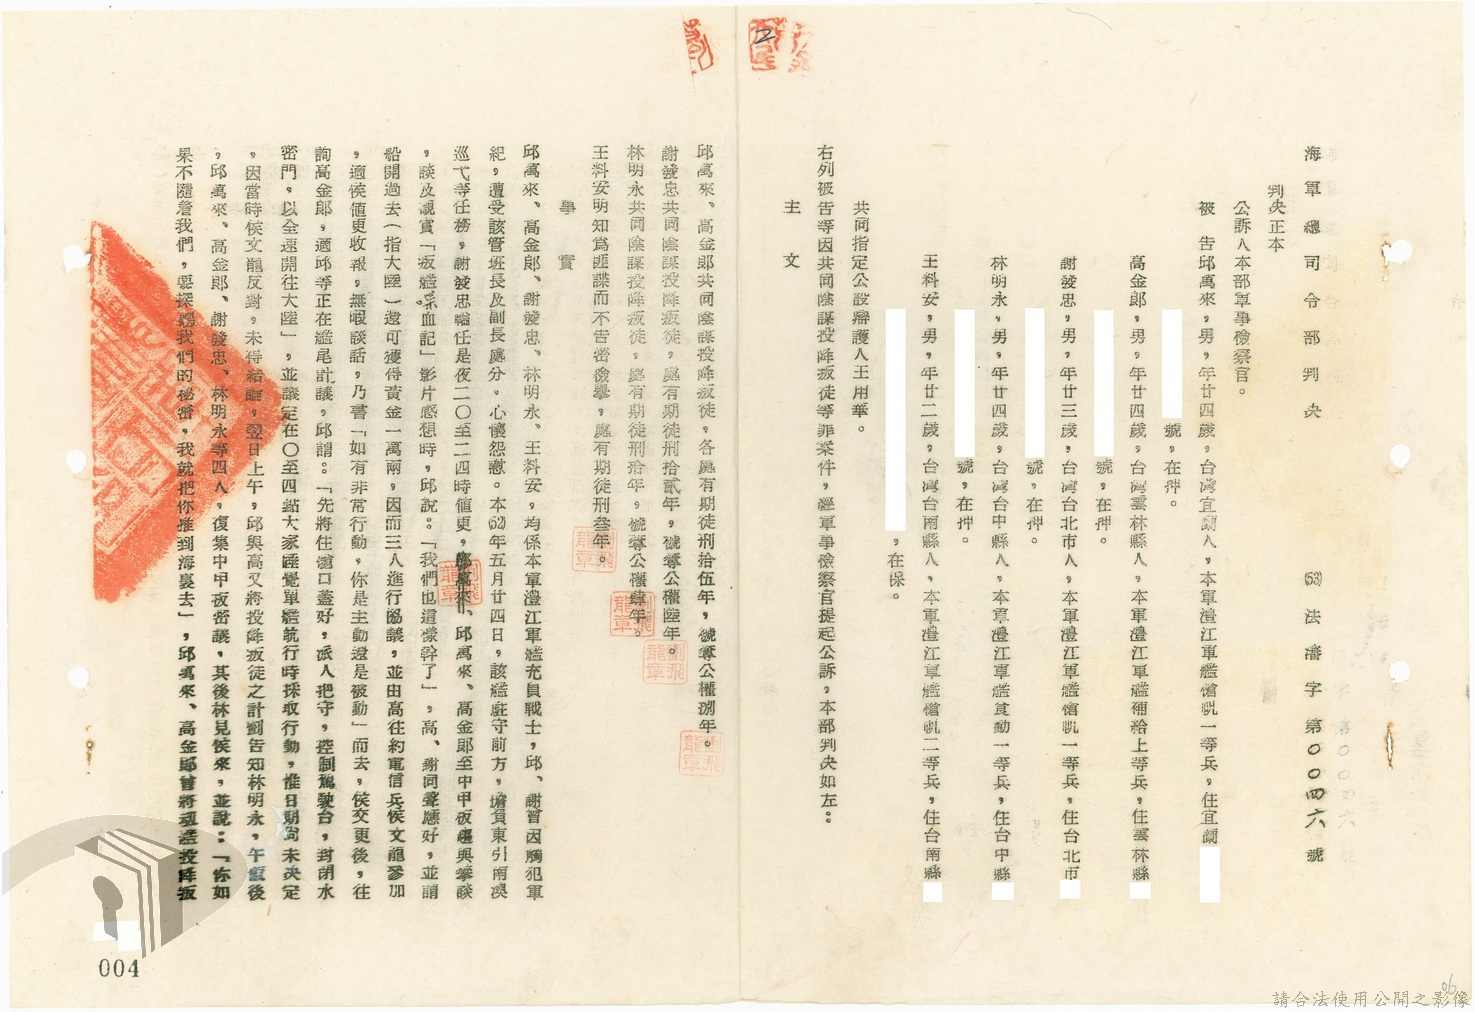 海軍總司令部判決 (53)法瀋字第〇〇四六號
判決正本
公訴人本部軍事檢察官。
被 告邱萬來,男,年廿四歲,台灣宜蘭人,本軍澧江軍艦艙帆一等兵,住宜蘭
號,在押。
高金郎,男,年廿四歲,台灣雲林縣人,本軍澧江軍艦補給上等兵,住雲林縣
號,在押。
謝發忠,男,年廿三歲,台灣台北市人,本軍澧江軍艦艙帆一等兵,住台北市
號,在押。
林明永,男,年廿四歲,台灣台中縣人,本軍澧江軍艦食勤一等兵,住台中縣
號,在押。
王料安,男,年廿二歲,台灣台南縣人,本軍澧江軍艦艙帆二等兵,住台南縣
,在保。
共同指定公設辯護人王用華。
右列被告等因共同陰謀投降叛徒等罪案件,經軍事檢察官提起公訴,本部判決如左:
主 文
邱萬來、高金郎共同陰謀投降叛徒,各處有期徒刑拾伍年,褫奪公權捌年。
謝發忠共同陰謀投降叛徒,處有期徒刑拾貳年,褫奪公權陸年。
林明永共同陰謀投降叛徒,處有期徒刑拾年,褫奪公權肆年。
王料安明知為匪諜而不告密檢舉,處有期徒刑叁年。
事 實
邱萬來、高金郎、謝發忠、林明永、王料安,均係本軍澧江軍艦充員戰士,邱、謝曾因觸犯軍
紀,遭受該管班長及副長處分,心懷怨懟。本(52)年五月廿四日,該艦駐守前方,擔負東引南澳
巡弋等任務,謝發忠輪任是夜二〇至二四時值更,邱萬來、高金郎至中甲板與謝談
,談及觀賞「叛艦喋血記」影片感想時,邱說:「我們也這樣幹了」,高、謝同聲應好,並謂
船開過去(指大陸)還可獲得黃金一萬兩,因而三人進行協議,並由高往約電信兵侯文龍參加
,適侯值更收報,無暇談話,乃書「如有非常行動,你是主動還是被動」而去,侯交更後,往
詢高金郎,適邱等正在艦尾計議,邱謂:「先將住艙口蓋好,派人把守,控制駕駛台,封閉水
密門,以全速開往大陸」,並議定在〇至四點大家睡覺單艦航行時採取行動,惟日期尚未決定
,因當時侯文龍反對,未得結論,翌日上午,邱與高又將投降叛徒之計劃告知林明永,午飯後
,邱萬來、高金郎、謝發忠、林明永等四人,復集中甲板密議,其後林見侯來,並說:「你如
果不隨着我們,要探聽我們的秘密,我就把你推到海裏去」,邱萬來、高金郎曾將劫艦投降叛
004
06
請合法使用公開之影像